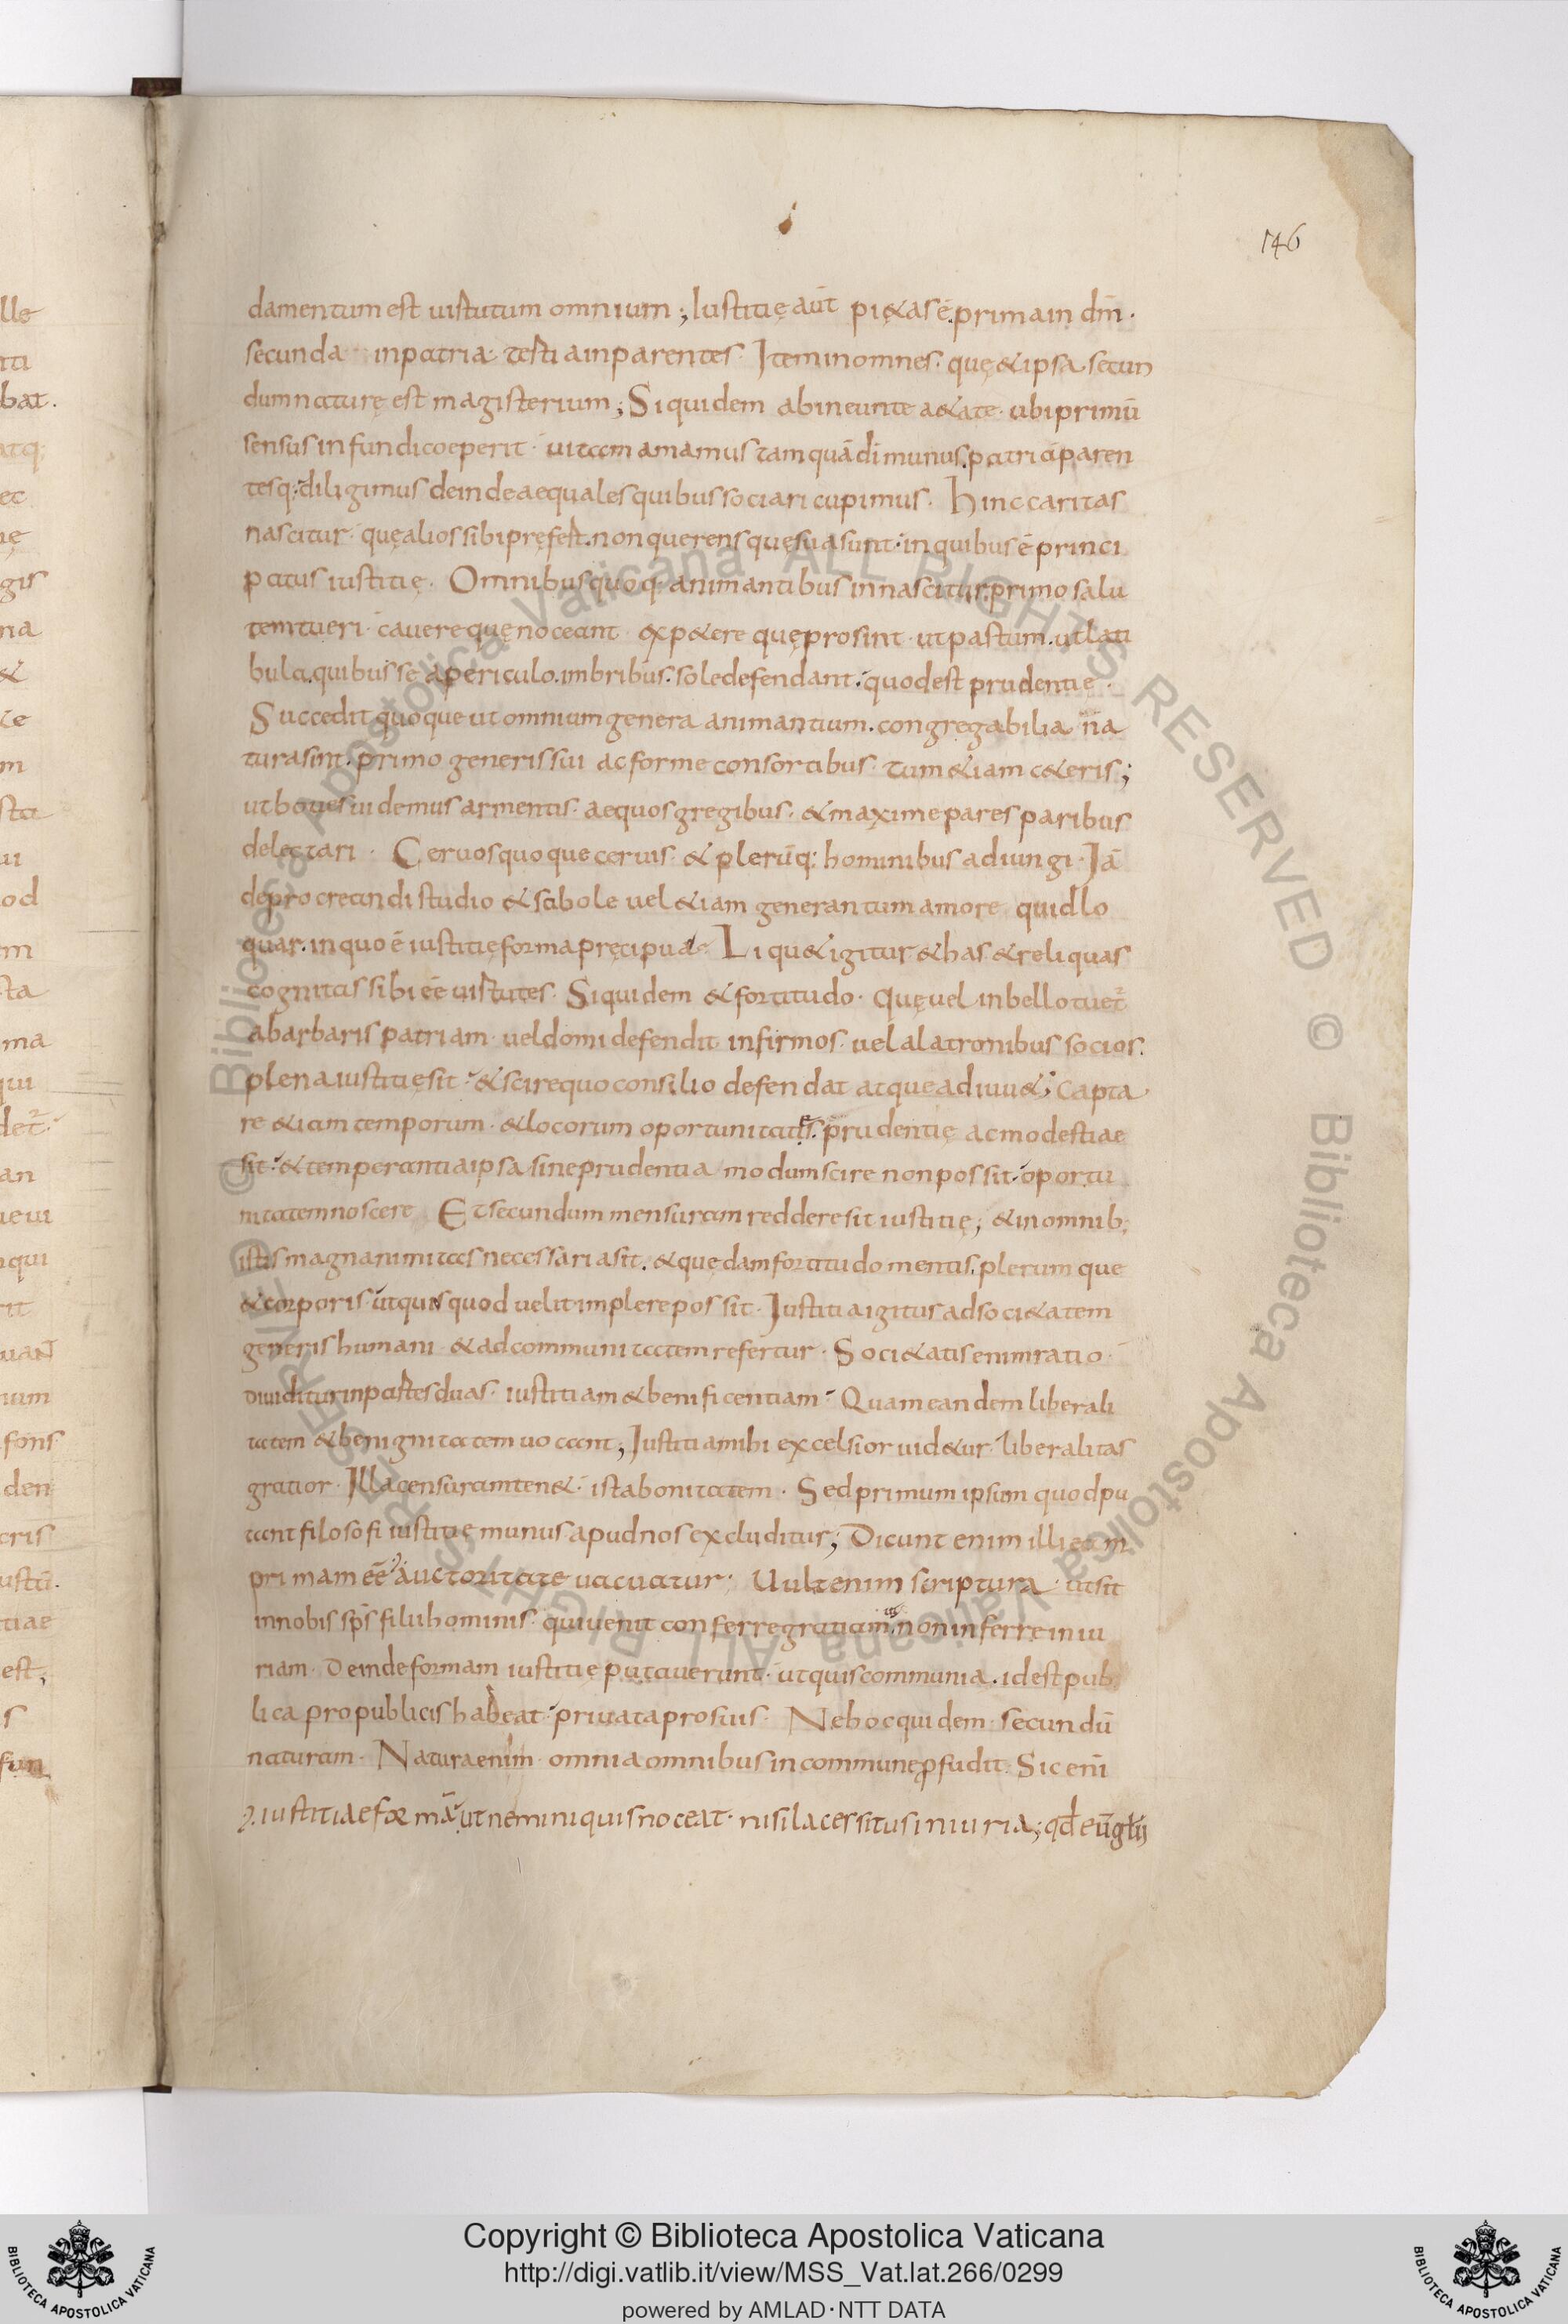 146
damentum est uirtutum omnium; Iustitię aūt pi&as ē. prima in dm̄.
secunda in patria. tertia in parentes. Item in omnes. quę & ipsa secun
dum naturę est magisterium; Siquidem ab ineunte a&ate. ubi primū
sensus infundi coeperit. uitam amamus tamquā di munus. patriā paren
tesq; diligimus deinde aequales quibus sociari cupimus. Hinc caritas
nascitur. quę alios sibi pręfert. non querens quę sua sunt. in quibus ē princi
patus iustitię. Omnibus quoq. animantibus innascitur. primo salu
tem tueri. cauere quę noceant. exp&ere quę prosint. ut pastum. ut lati
bula. quibus se a periculo. imbribus. sole defendant. quod est prudentie.
Succedit quoque ut omnium genera animantium. congregabilia na
tura sint. primo generis sui ac forme consortibus. tum &iam c&eris;
ut boues uidemus armentis. aequos gregibus. & maxime pares paribus
delectari. Ceruos quoque ceruis. & plerūq; hominibus adiungi. Iā
de procreandi studio & sabole uel &iam generantum amore quid lo
quar. in quo ē iustitię forma pręcipua. Liqu& igitur & has & reliquas
cognatas sibi eē uirtutes. Siquidem & fortitudo. quę uel in bello tuet̄
a barbaris patriam. uel domi defendit infirmos. uel a latronibus socios.
plena iustitię sit. & scire quo consilio defendat atque adiuu&; capta
re &iam temporum. & locorum oportunitates. prudentię ac modestiae
sit. & temperantia ipsa sine prudentia modum scire non possit. oportu
nitatem noscere. Et secundum mensuram reddere sit iustitię; & in omnib;
istis magnanimitas necessaria sit. & quędam fortitudo mentis. plerumque
& corporis. ut quis quod uelit implere possit. Iustitia igitur ad soci&atem
generis humani. & ad communitatem refertur. Soci&atis enim ratio.
diuiditur in partes duas. iustitiam & benificentiam. Quam eandem liberali
tatem & benignitatem uocant; Iustitia mihi excelsior uid&ur. liberalitas
gratior. Illa censuram ten&. ista bonitatem. Sed primum ipsum quod pu
tant filosofi iustitię munus apud nos excluditur; Dicunt enim illi eam
primam eē
.iustitiae formā. ut nemini quis noceat. nisi lacessitus iniuria; qđ euḡlij
auctoritate uacuatur. Uult enim scriptura. ut sit
in nobis sp̄s filii hominis. qui uenit conferre gratiam. non inferre iniu
riam. Deinde formam iustitię putauerunt. ut quis communia. id est pub
lica pro publicis habeat. priuata pro suis. Ne hoc quidem. secundū
naturam. Natura enim omnia omnibus in commune profudit. Sic enī
Copyright © Biblioteca Apostolica Vaticana
http://digi.vatlib.it/view/MSS_Vat.lat.266/0299
powered by AMLAD·NTT DATA
BIBLIOTECA APOSTOLICA VATICANA
BIBLIOTECA APOSTOLICA VATICANA